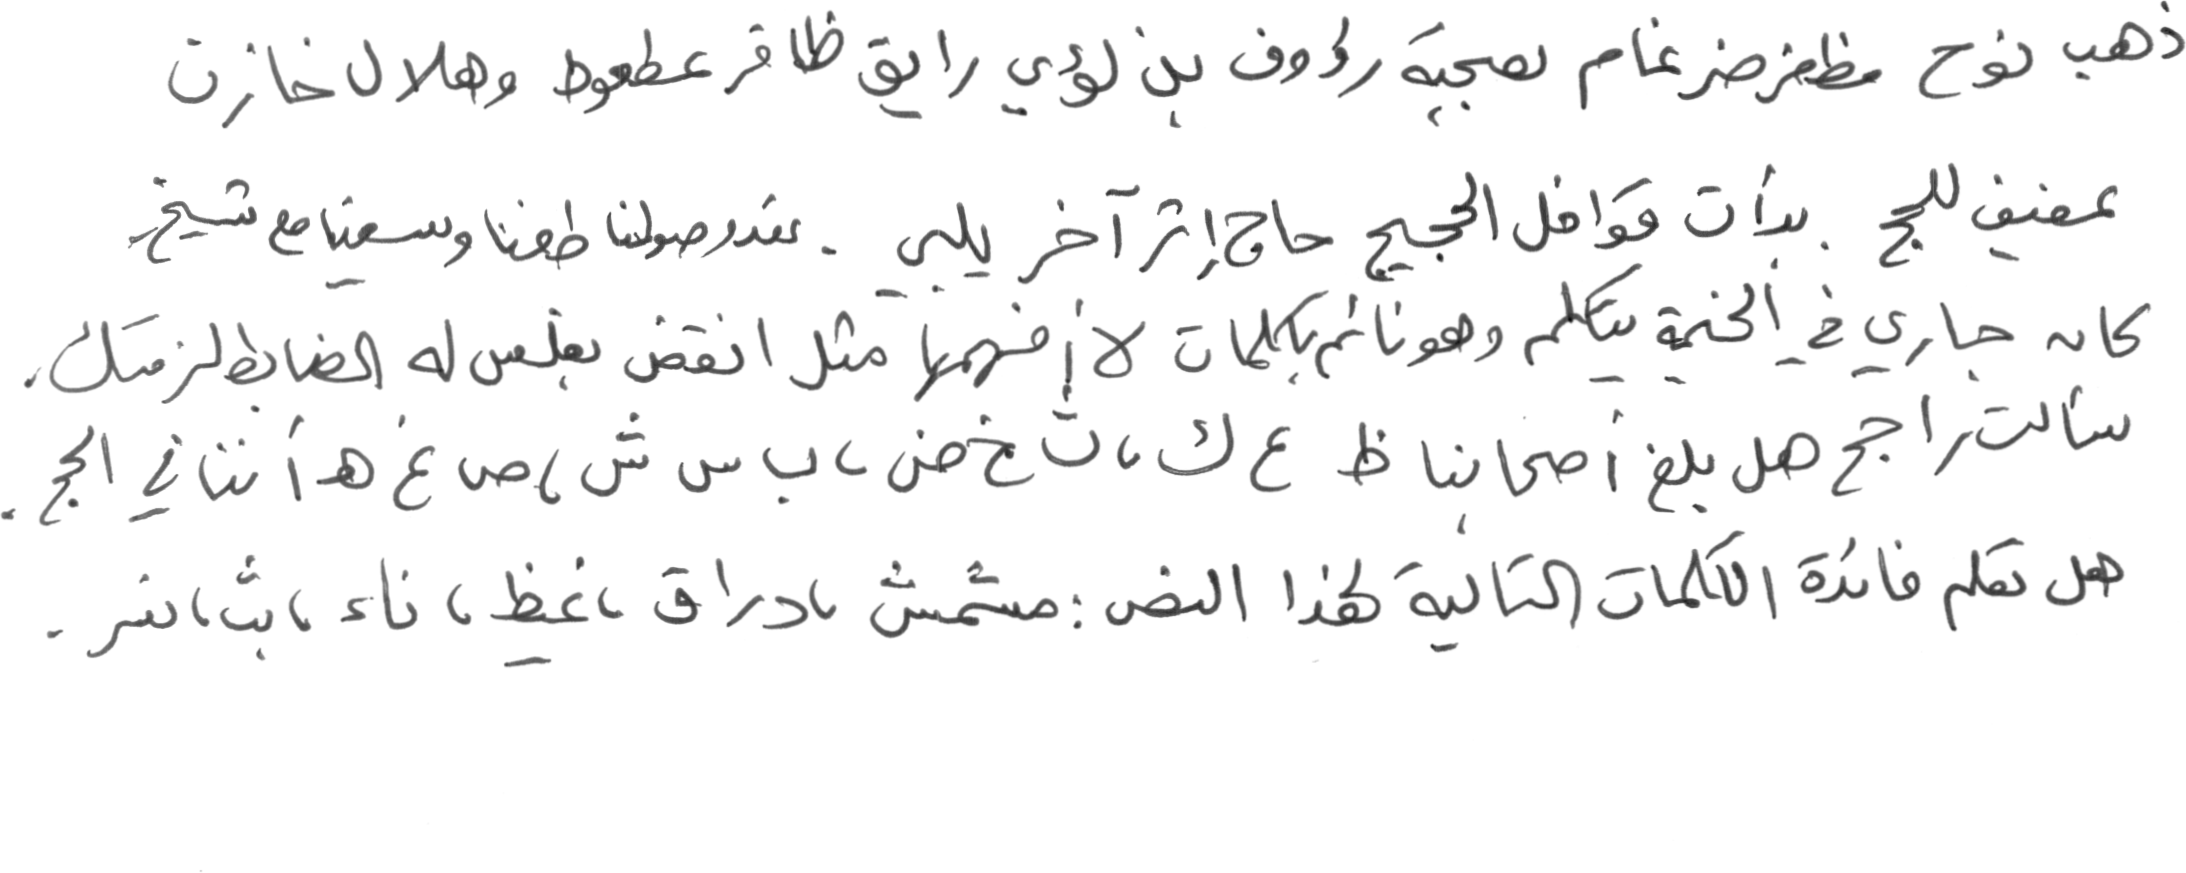 ذهب نوح مظفر ضرغام بصحبة رؤوف بن لؤي رايق ظافر عطعوط وهلال خازن
عفيف للحج . بدأت قوافل الحجيج حاج إثر آخر يلبي . عند وصولنا طفنا وسعينا مع شيخ
كان جاري في الخيمة يتكلم وهو نائم بكلمات لا أفهمها مثل انقض بغلس له الضابط لزمتك .
سألت راجح هل بلغ أصحابنا ظ ع ك ، ث خ ض ، ب س ش ، ص غ هـ أننا في الحج .
هل تعلم فائدة الكلمات التالية لهذا النص : مشمش ، دراق ، غيظ ، ناء ، بث ، نسر .